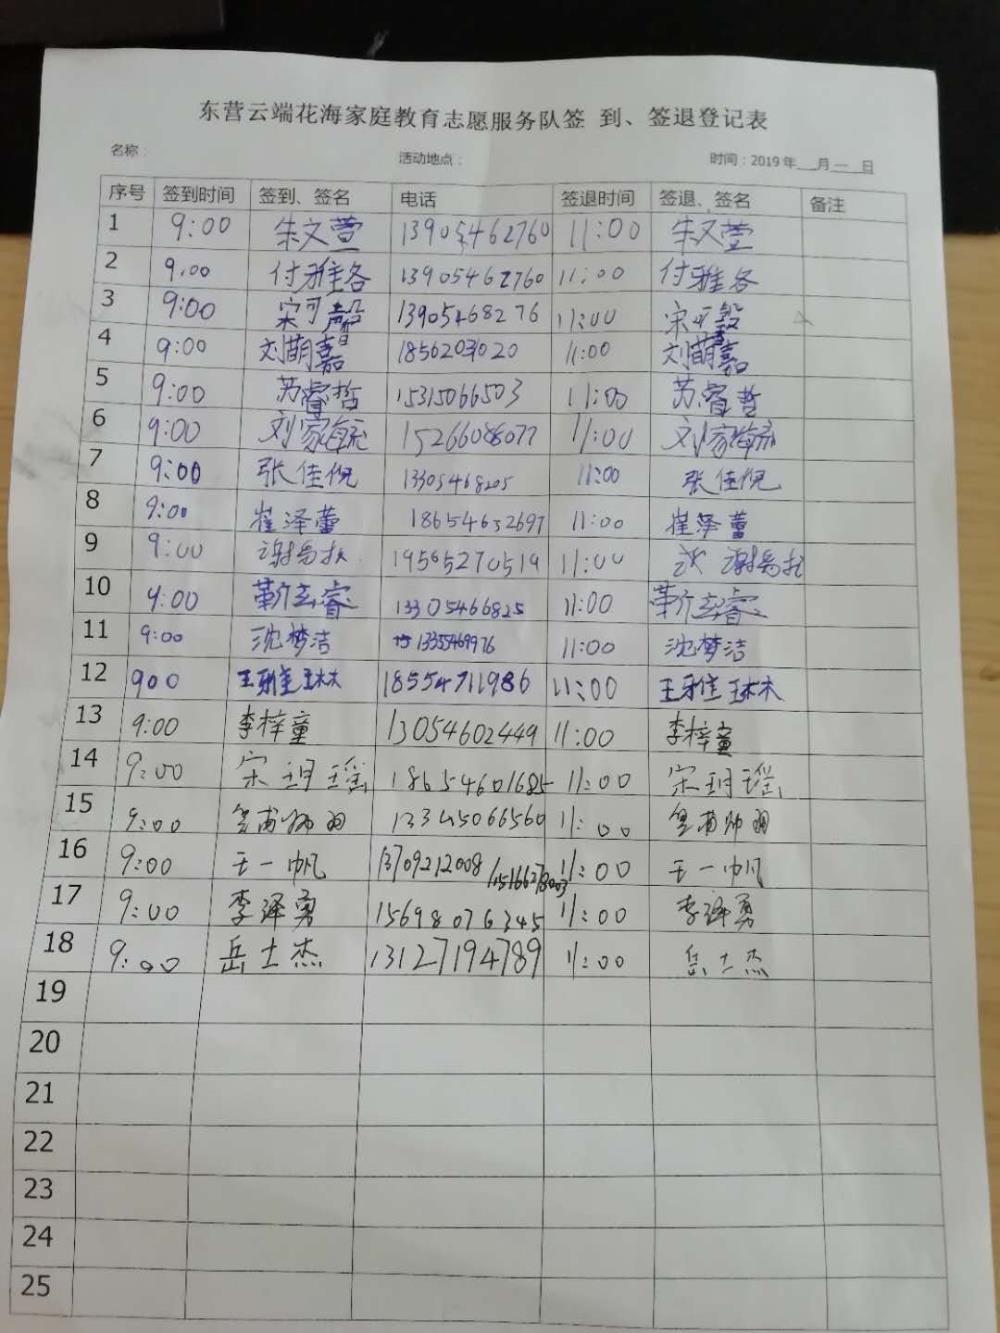 东营云端花海家庭教育志愿服务队签 到、签退登记表
名称： 活动地点： 时间：2019年__月__日
序号 签到时间 签到、签名 电话 签退时间 签退、签名 备注
1 9:00 朱文萱 13905462760 11:00 朱文萱
2 9:00 付雅各 13905462760 11:00 付雅各
3 9:00 宋可馨 13905468276 11:00 宋可馨
4 9:00 刘萌嘉 1856203020 11:00 刘萌嘉
5 9:00 苏睿哲 15315066503 11:00 苏睿哲
6 9:00 刘家毓 15266088077 11:00 刘家毓
7 9:00 张佳倪 13305468205 11:00 张佳倪
8 9:00 崔泽蕾 18654632697 11:00 崔泽蕾
9 9:00 19565270519 11:00
10 9:00 13305466825 11:00
11 9:00 沈梦洁 1335469976 11:00 沈梦洁
12 900 王雅 18554711986 11:00 王雅
13 9:00 李梓童 13054602449 11:00 李梓童
14 9:00 宋玥瑶 18654601685 11:00 宋玥瑶
15 9:00 13345066560 11:00
16 9:00 王一帆 13709212008 11:00 王一帆
17 9:00 李泽勇 15698076345 11:00 李泽勇
18 9:00 岳士杰 13127194789 11:00 岳士杰
19
20
21
22
23
24
25